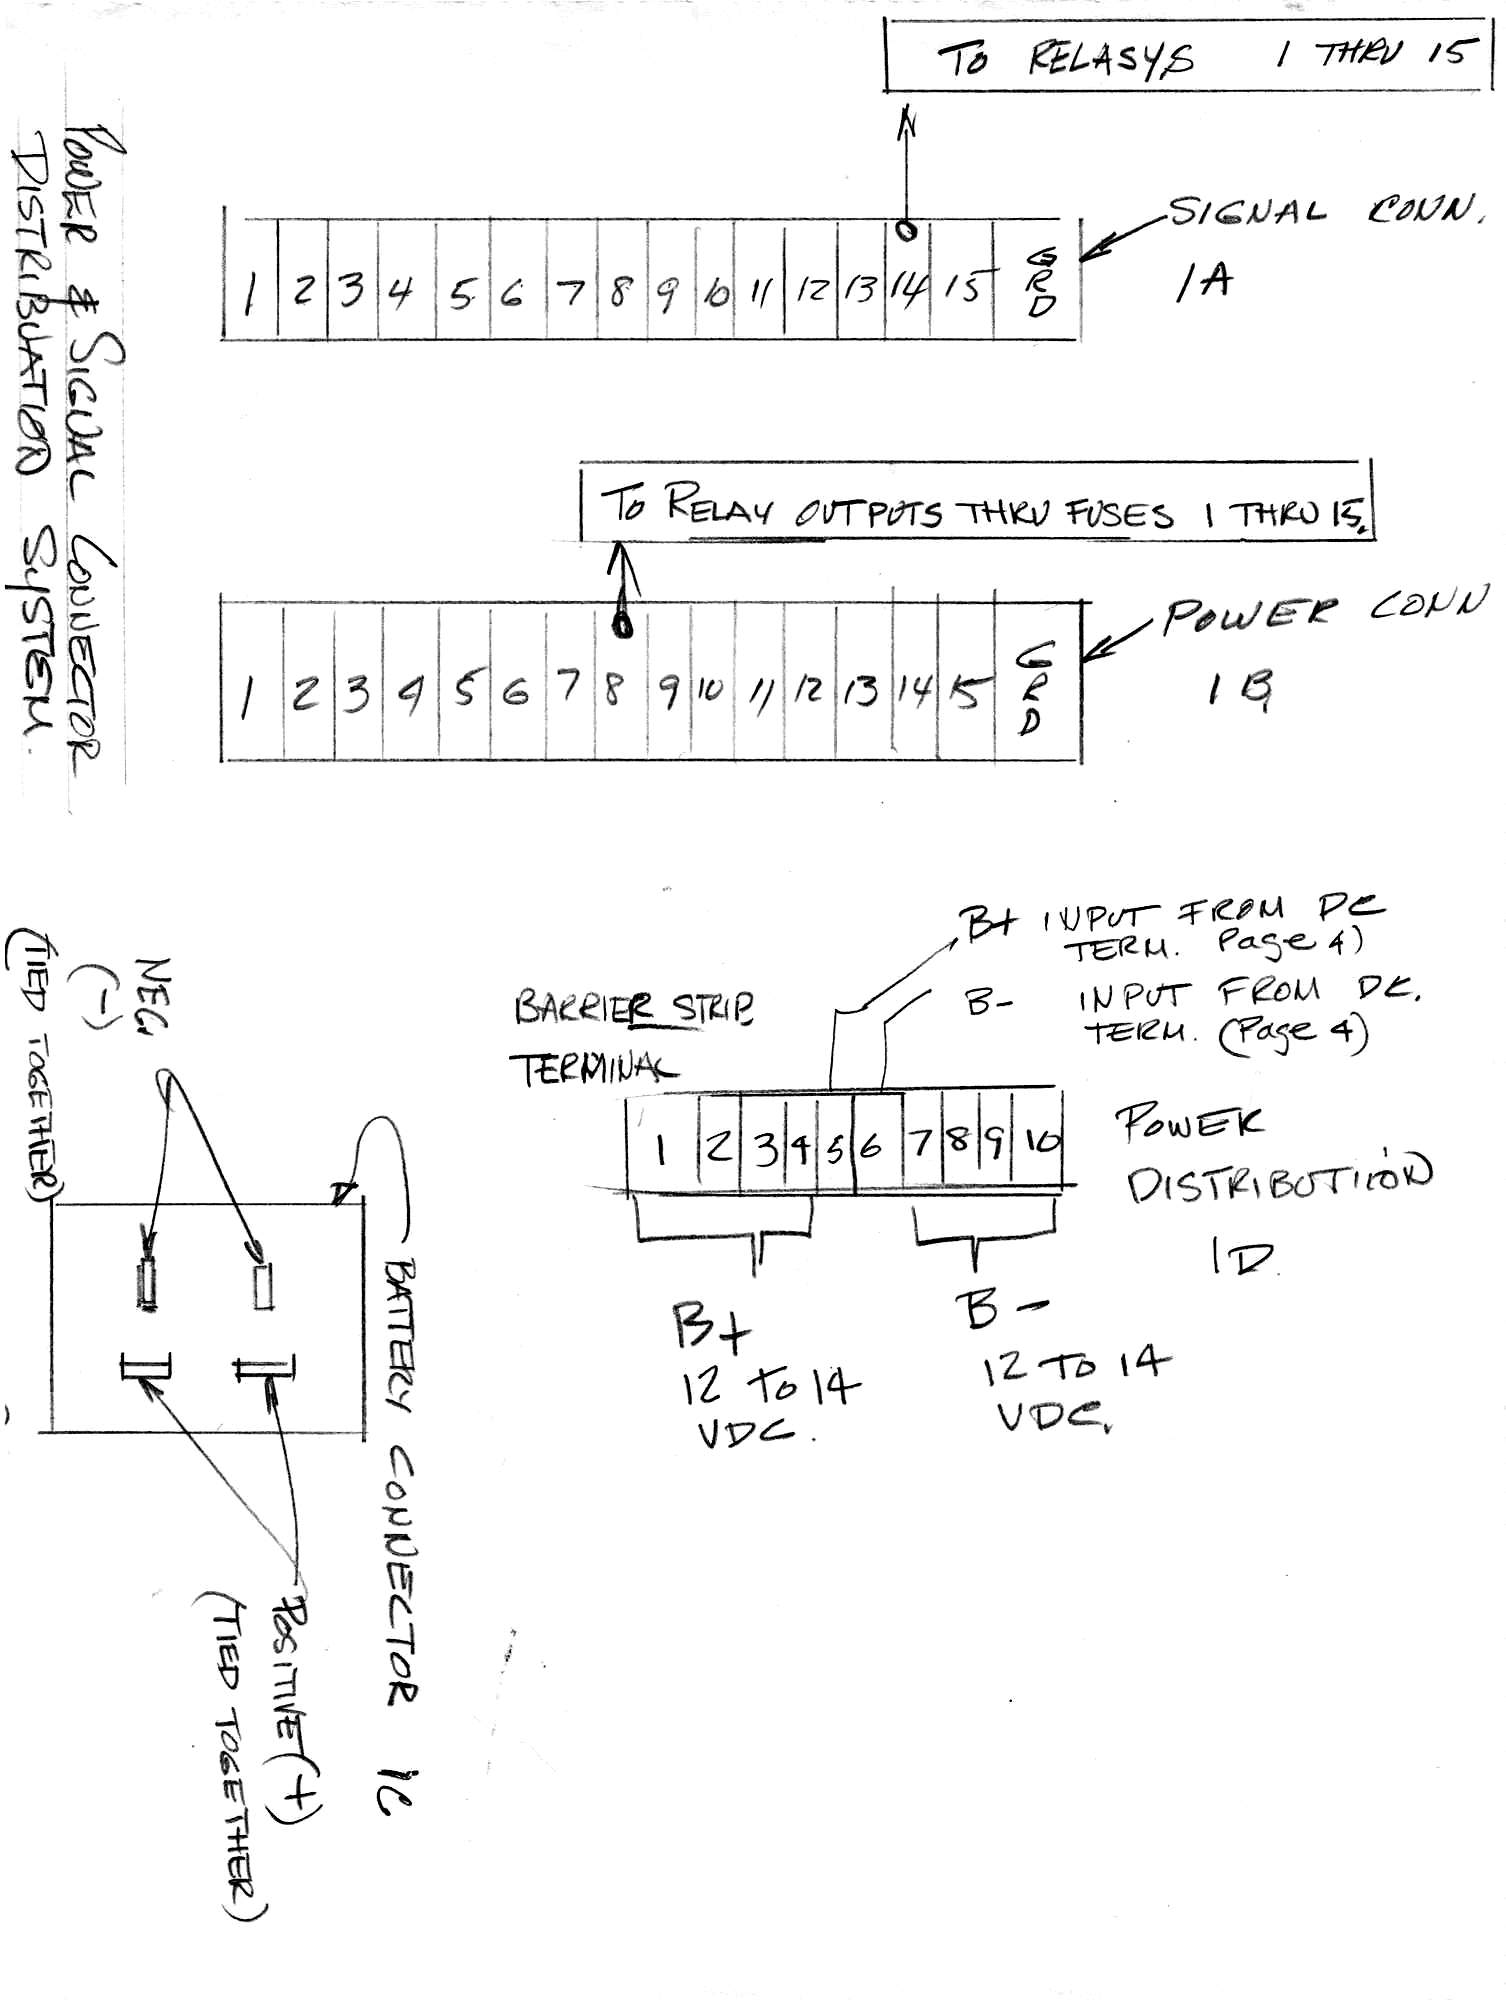 POWER & SIGNAL CONNECTOR
DISTRIBUATION SYSTEM.
TO RELASYS 1 THRU 15
SIGNAL CONN.
1A
1 2 3 4 5 6 7 8 9 10 11 12 13 14 15 GRD
TO RELAY OUTPUTS THRU FUSES 1 THRU 15.
POWER CONN
1B
1 2 3 4 5 6 7 8 9 10 11 12 13 14 15 GRD
B+ INPUT FROM DC
TERM. Page 4)
B- INPUT FROM DC.
TERM. (Page 4)
BARRIER STRIP
TERMINAL
1 2 3 4 5 6 7 8 9 10
POWER
DISTRIBUTIION
1D
B+
12 TO 14
VDC.
B-
12 TO 14
VDC.
NEG.
(-)
(TIED TOGETHER)
BATTERY CONNECTOR 1C
POSITIVE (+)
(TIED TOGETHER)